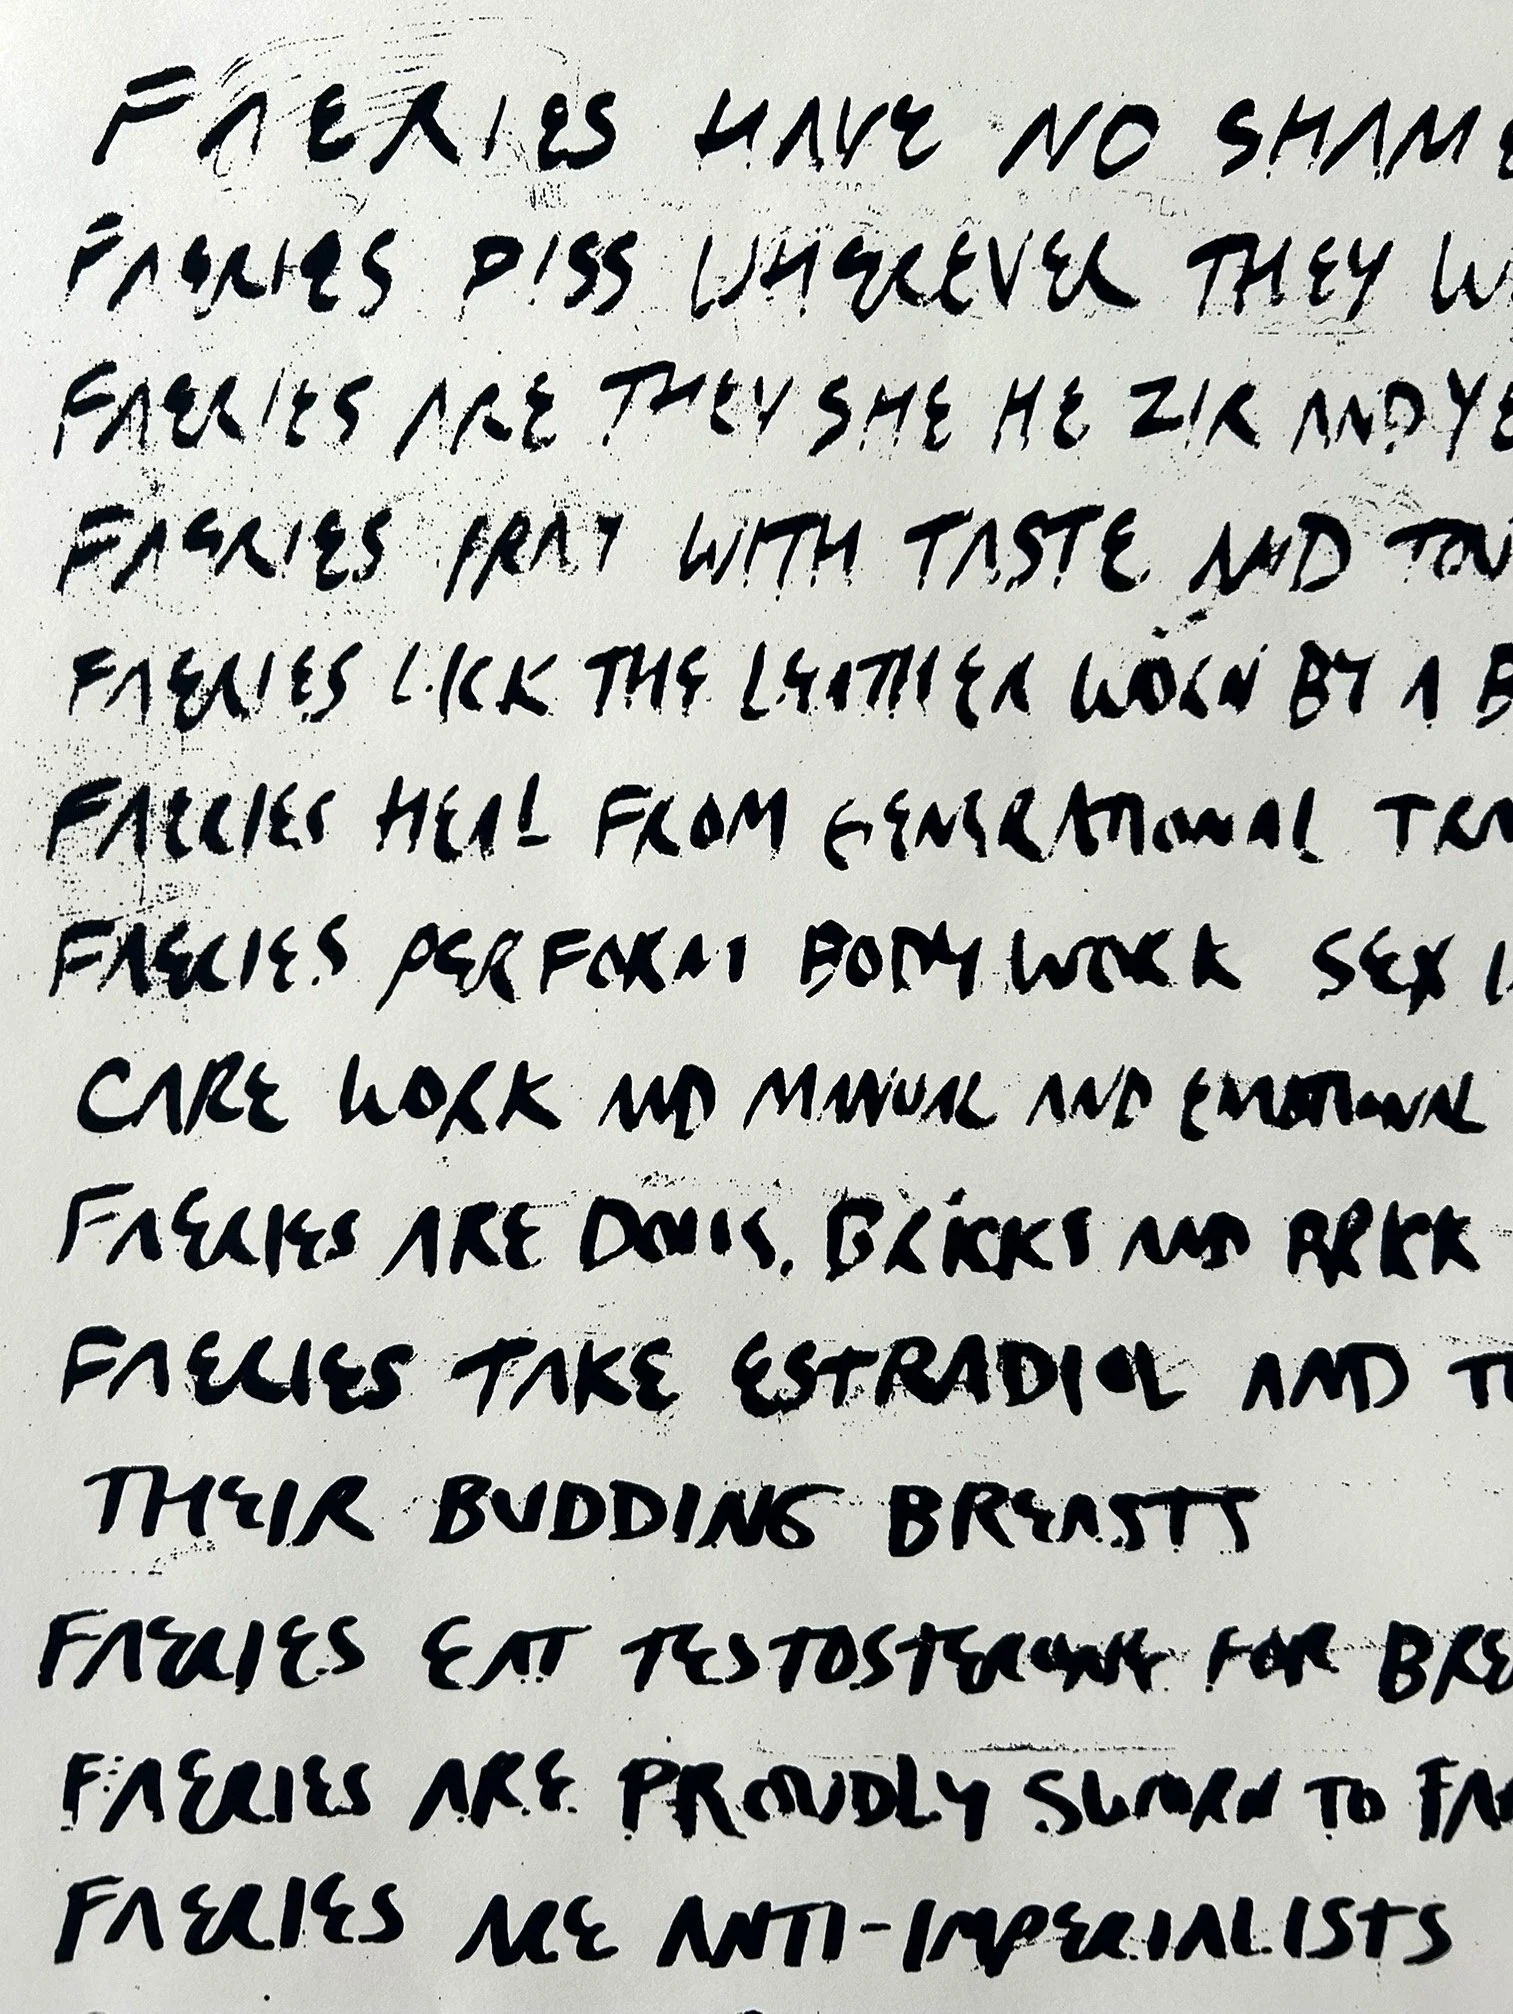 FAERIES HAVE NO SHAME
FAERIES PISS WHEREVER THEY W
FAERIES ARE THEY SHE HE ZIR AND YE
FAERIES PRAY WITH TASTE AND TOU
FAERIES LICK THE LEATHER WORN BY A B
FAERIES HEAL FROM GENERATIONAL TRA
FAERIES PERFORM BODY WORK SEX
CARE WORK AND MANUAL AND EMOTIONAL
FAERIES ARE DOLLS, BRICKS AND BRICK
FAERIES TAKE ESTRADIOL AND T
THEIR BUDDING BREASTS
FAERIES EAT TESTOSTERONE FOR BRE
FAERIES ARE PROUDLY SWORN TO FA
FAERIES ARE ANTI-IMPERIALISTS